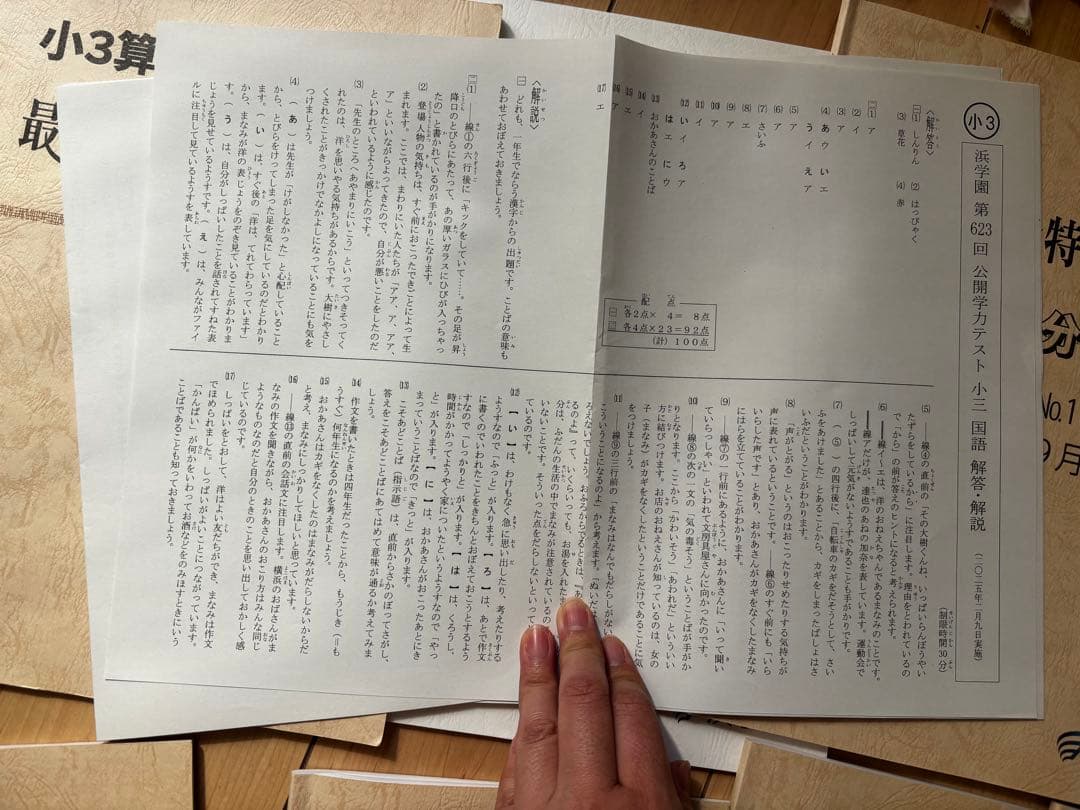 小3算
最
特
分
No.1
9月
小3
浜学園 第623回 公開学力テスト 小三 国語 解答・解説
(二〇二五年二月九日実施)
〔制限時間30分〕
〈解答〉
一 1 しんりん (2) はっぴゃく
(3) 草花 (4) 赤
二 1 ア
(2) イ
(3) ア
(4) あ ウ い エ
う イ え ア
(5) ア
(6) ア
(7) さいふ
(8) エ
(9) ア
(10) エ
(11) イ
(12) い イ ろ ア
は エ に ウ
(13) おかあさんのことば
(14) イ
(15) イ
(16) ア
(17) エ
配点
一 各2点× 4= 8点
二 各4点×23=92点
(計) 100点
〈解説〉
一 どれも、一年生でならう漢字からの出題です。ことばの意味も
あわせておぼえておきましょう。
二 1 ――線①の六行後に「キックをしていて……。その足が昇
降口のとびらにあたって、あの厚いガラスにひびが入っちゃっ
たの」と書かれているのが手がかりになります。
(2) 登場人物の気持ちは、すぐ前におこったできごとによって生
まれます。ここでは、まわりにいた人たちが「アア、ア、アア、
ア」といいながらよってきたので、自分が悪いことをしたのだ
といわれているように感じたのです。
(3) 「先生のところへあやまりにいこう」といってつきそってく
れたのは、洋を思いやる気持ちがあるからです。大樹にやさし
くされたことがきっかけでなかよしになっていることにも気を
つけましょう。
(4) (あ)は先生が「けがしなかった」と心配していること
から、とびらをけってしまった足を気にしているのだとわかり
ます。(い)は、すぐ後の「洋は、てれてわらっています」
から、まなみが洋の表じょうをのぞき見ていることがわかりま
す。(う)は、自分がしっぱいしたことを話されてすねた表
じょうを見せているようすです。(え)は、みんながファイ
ルに注目して見ているようすを表しています。
(5) ――線④の直前の「その大樹くんね、いっぱいらんぼうやい
たずらをしているから」に注目します。理由をとわれているの
で「から」の前が答えのヒントになると考えられます。
(6) ――線イ～エは、洋のおねえちゃんであるまなみのことです。
――線アだけが、達也のあねの加奈を表しています。運動会で
しっぱいして元気がないようすであることも手がかりです。
(7) (⑤)の四行後に、「自転車のカギをだそうとして、さい
ふをあけました」とあることから、カギをしまったばしょはさ
いふだということがわかります。
(8) 「声がとがる」というのはおこったりせめたりする気持ちが
声に表れているということです。――線⑥のすぐ前にも「いら
いらした声です」とあり、おかあさんがカギをなくしたまなみ
にはらを立てていることがわかります。
(9) ――線⑦の一行前にあるように、おかあさんに「いって聞い
ていらっしゃい」といわれて文房具屋さんに向かったのです。
(10) ――線⑧の次の一文の「気の毒そう」ということばが手がか
りとなります。ここから「かわいそう」「あわれだ」といういい
方に結びつけます。お店のおねえさんが知っているのは、女の
子(まなみ)がカギをなくしたということだけだということに気
をつけましょう。
(11) ――線⑨の三行前の「まなみはなんでもだらしがない
ろえないでしょう。おふろからでるときは、
るのよ」って、いくらいっても、お湯を入れた
分は、ふだんの生活の中でまなみが注意されているの
いないことです。そういった点をだらしないといって
ているのです。
(12) 【い】は、わけもなく急に思い出したり、考えたりする
ようすなので「ふっと」が入ります。【ろ】は、あとで作文
に書くのでいわれたことをきちんとおぼえておこうとするよう
すなので「しっかりと」が入ります。【は】は、くろうし、
時間がかかってようやく家についたというようすなので、「やっ
と」が入ります。【に】は、おかあさんがおこったあとにき
まっていうことばなので「きっと」が入ります。
(13) こそあどことば(指示語)は、直前からさかのぼってさがし、
答えをこそあどことばにあてはめて意味が通るか考えてみま
しょう。
(14) 作文を書いたときは四年生だったことから、もうじき(=も
うすぐ)何年生になるのかを考えましょう。
(15) おかあさんはカギをなくしたのはまなみがだらしないからだ
と考え、まなみにしっかりしてほしいと思っています。
(16) ――線⑬の直前の会話文に注目します。横浜のおばさんがま
なみの作文を聞きながら、おかあさんのおこり方はみんな同じ
ようなものなのだと自分のときのことを思い出しておかしく感
じているのです。
(17) しっぱいをとおして、洋はよい友だちができ、まなみは作文
でほめられました。しっぱいがよいことにつながっています。
「かんぱい」が何かをいわってお酒などをのみほすときにいう
ことばであることも知っておきましょう。